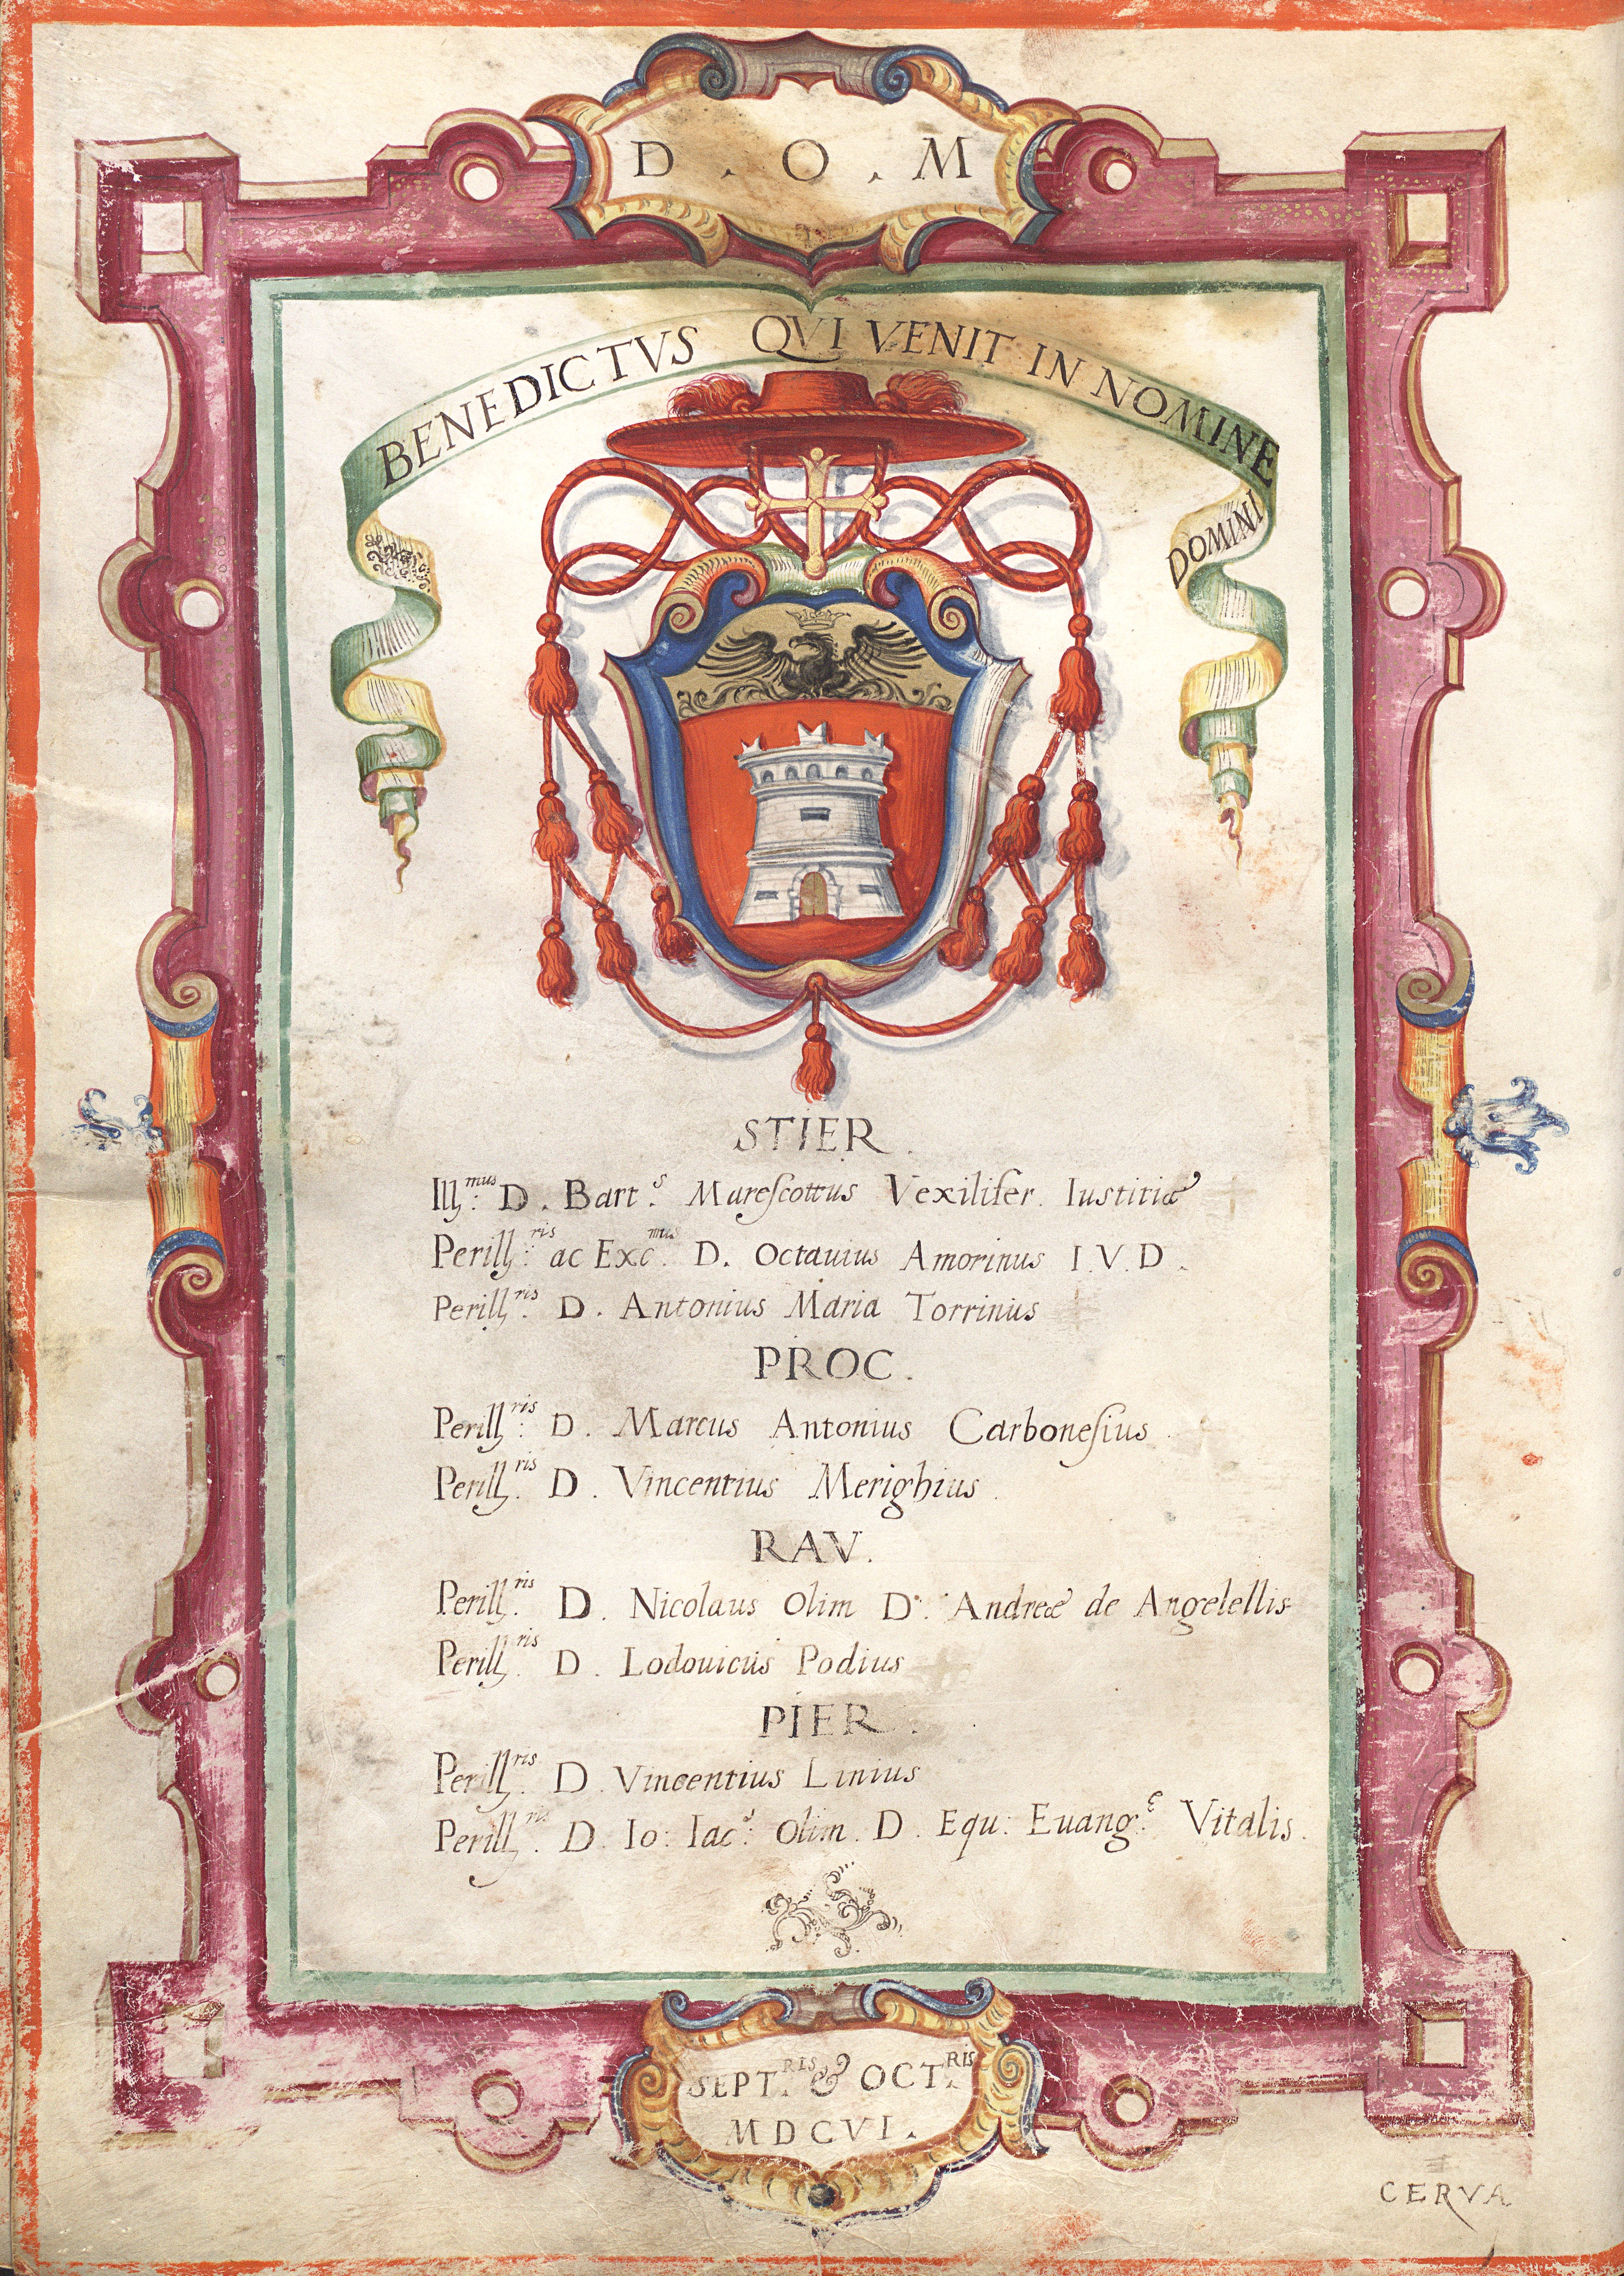 D . O . M
BENEDICTVS QVI VENIT IN NOMINE
DOMINI
STIER.
Ill:mus D. Bart:s Mareſcottus Vexilifer. Iustitiæ
Perill:ris ac Exc:mus D. Octauius Amorinus I.V.D.
Perill:ris D. Antonius Maria Torrinus
PROC.
Perill:ris D. Marcus Antonius Carboneſius.
Perill:ris D. Vincentius Merighius.
RAV.
Perill:ris D. Nicolaus Olim D. Andreæ de Angelellis
Perill:ris D. Lodouicus Podius
PIER.
Perill:ris D. Vincentius Linius
Perill:ris D. Io: Iac:s Olim. D. Equ: Euang:e Vitalis.
SEPT.RIS & OCT.RIS
MDCVI.
CERVA